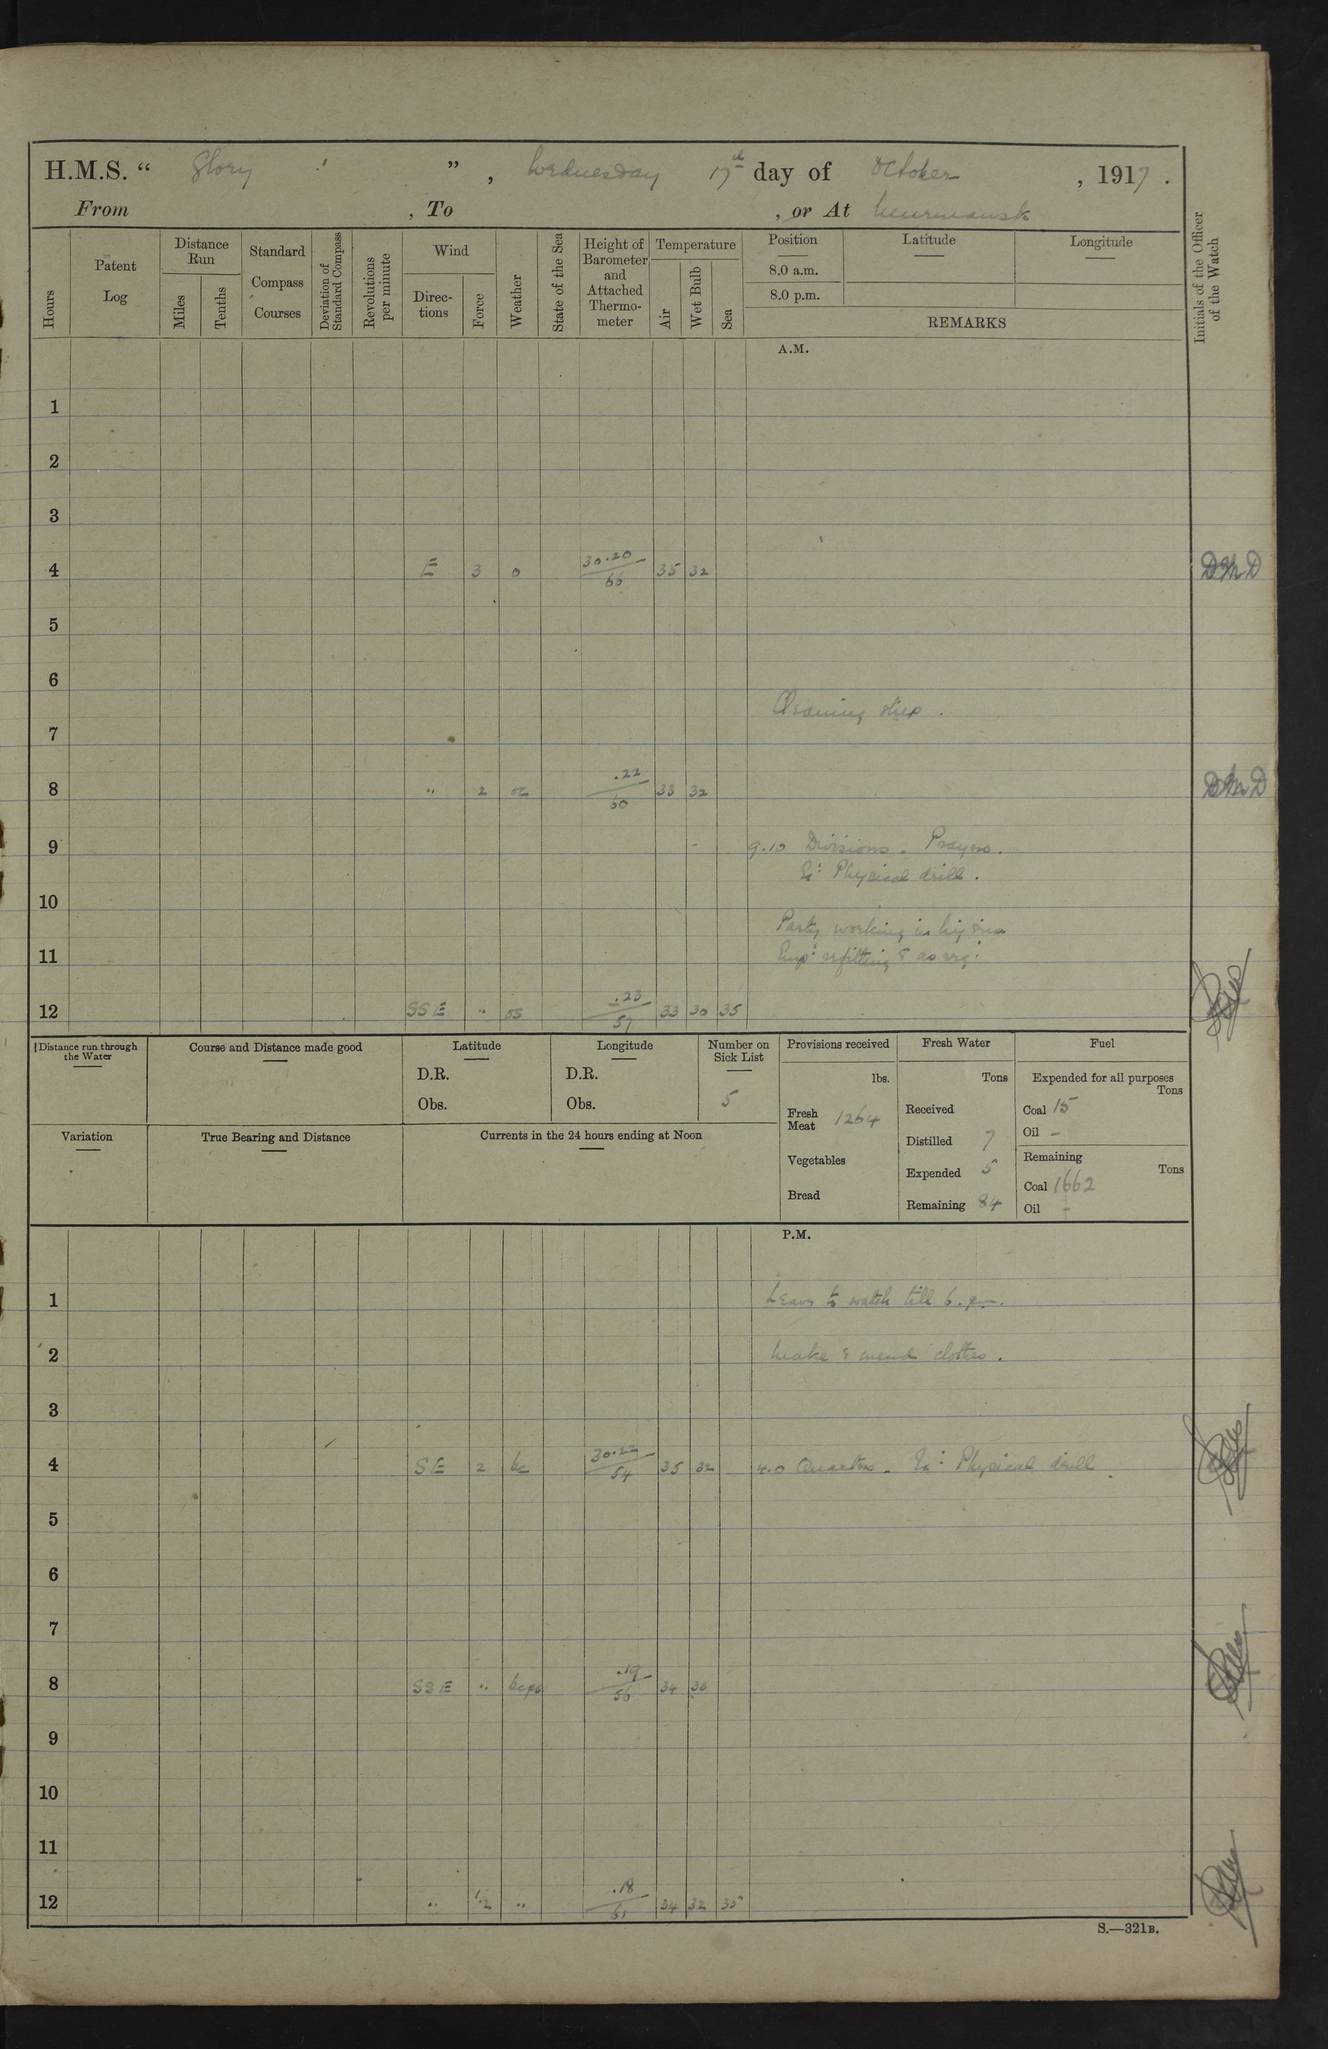 H.M.S. “ Glory ” , Wednesday 17th day of October , 1917 .
From , To , or At Murmansk
Hours
Patent Log
Distance Run
Miles
Tenths
Standard Compass Courses
Deviation of Standard Compass
Revolutions per minute
Wind
Directions
Force
Weather
State of the Sea
Height of Barometer and Attached Thermometer
Temperature
Air
Wet Bulb
Sea
Position
8.0 a.m.
8.0 p.m.
Latitude
Longitude
REMARKS
Initials of the Officer of the Watch
A.M.
1
2
3
4 E 3 o 30.20 66 35 32 DMD
5
6
Cleaning ship.
7
8 " 2 oc .22 60 33 32 DMD
9 9.10 Divisions. Prayers.
Ex: Physical drill.
10
Party working in
11 refitting & as req:
12 SSE " os .23 57 33 30 35
Distance run through the Water
Course and Distance made good
Latitude
D.R.
Obs.
Longitude
D.R.
Obs.
Number on Sick List
5
Provisions received
lbs.
Fresh Meat 1264
Vegetables
Bread
Fresh Water
Tons
Received
Distilled 7
Expended 5
Remaining 84
Fuel
Expended for all purposes
Tons
Coal 15
Oil –
Remaining
Tons
Coal 1662
Oil –
Variation
True Bearing and Distance
Currents in the 24 hours ending at Noon
P.M.
1 Leave to watch till 6. pm.
2 Make & mend clothes.
3
4 SE 2 bc 30.22 54 35 32 4.0 Quarters. Ex: Physical drill.
5
6
7
8 SSE " .19 56 34 30
9
10
11
12 " 1.2 " .18 61 34 32 35
S.—321B.